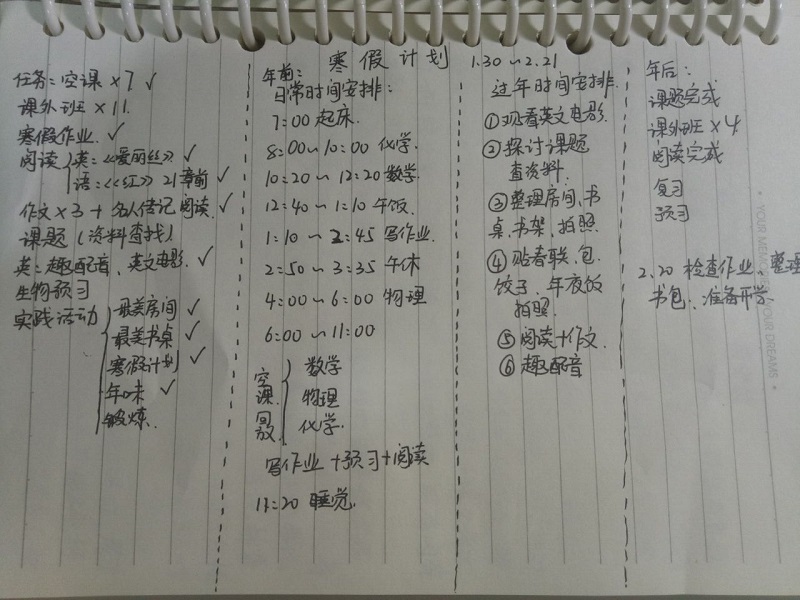 寒假计划
1.30～2.21
任务：空课×7 ✓
课外班×11.
寒假作业. ✓
阅读 英：《爱丽丝》. ✓
语：《红》 21章前 ✓
作文×3 + 名人传记阅读. ✓
课题（资料查找）
英：趣配音、英文电影. ✓
生物预习
实践活动 最美房间 ✓
最美书桌 ✓
寒假计划 ✓
年味 ✓
锻炼.
年前：
日常时间安排：
7:00 起床.
8:00～10:00 化学.
10:20～12:20 数学.
12:40～1:10 午饭.
1:10～2:45 写作业.
2:50～3:35 午休
4:00～6:00 物理
6:00～11:00
空课回放 数学
物理
化学.
写作业+预习+阅读
11:20 睡觉.
过年时间安排.
①观看英文电影.
②探讨课题
查资料.
③整理房间、书
桌、书架、拍照.
④贴春联、包
饺子、年夜饭
拍照.
⑤阅读+作文.
⑥趣配音
年后：
课题完成
课外班×4.
阅读完成
复习
预习
2.20 检查作业、整理
书包、准备开学.